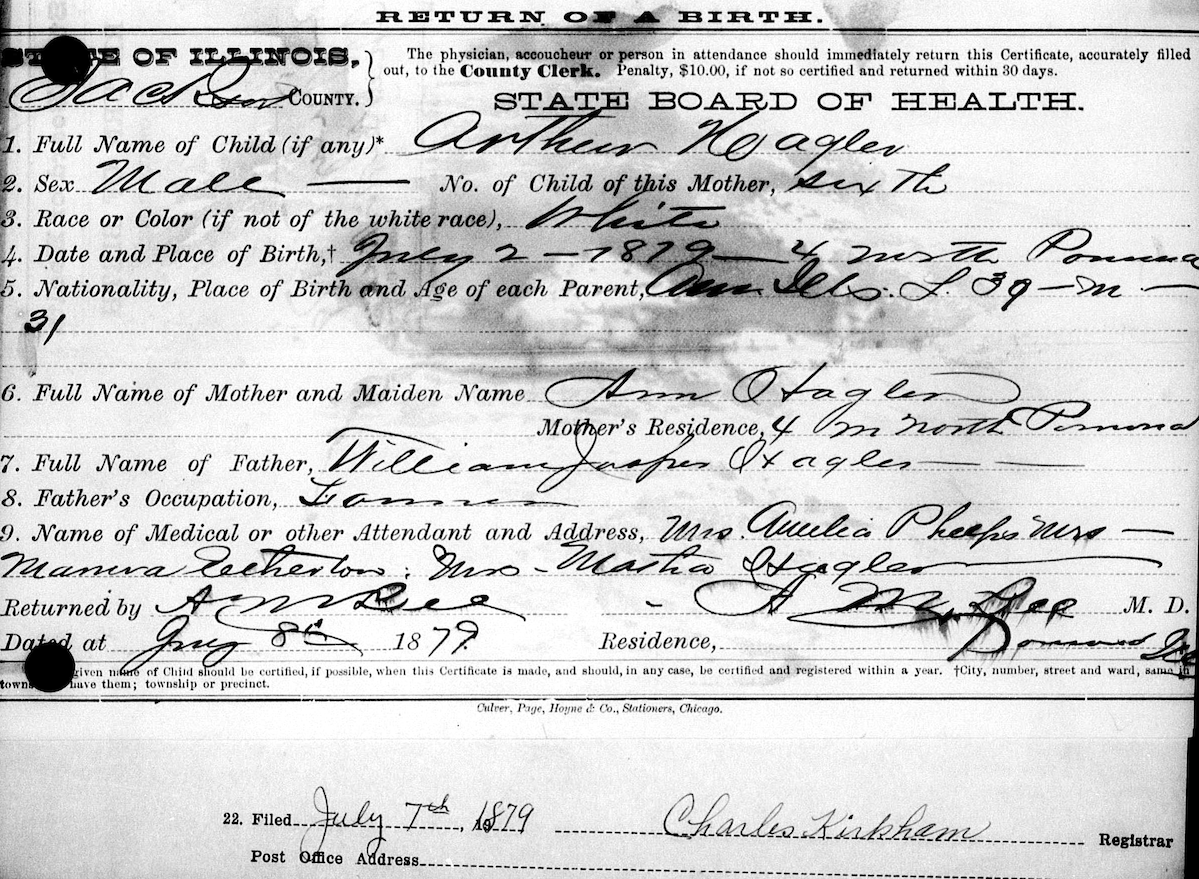 RETURN OF A BIRTH.
STATE OF ILLINOIS,
Jackson COUNTY.
The physician, accoucheur or person in attendance should immediately return this Certificate, accurately filled
out, to the County Clerk. Penalty, $10.00, if not so certified and returned within 30 days.
STATE BOARD OF HEALTH.
1. Full Name of Child (if any)* Arthur Hagler
2. Sex Male — No. of Child of this Mother, sixth
3. Race or Color (if not of the white race), White
4. Date and Place of Birth,† July 2 – 1879 — 4 north Pomona
5. Nationality, Place of Birth and Age of each Parent, Am Ills. F 39 – M –
31
6. Full Name of Mother and Maiden Name Ann Hagler
Mother's Residence, 4 m north Pomona
7. Full Name of Father, William Jasper Hagler — —
8. Father's Occupation, Farmer
9. Name of Medical or other Attendant and Address, Mrs. Amelia Phelps Mrs –
Etherton : Mrs – Martha Hagler
Returned by A M Lee – A M Lee M. D.
Dated at 8th 1879. Residence, Pomona Ills
given name of Child should be certified, if possible, when this Certificate is made, and should, in any case, be certified and registered within a year. †City, number, street and ward, same in
towns have them; township or precinct.
Culver, Page, Hoyne & Co., Stationers, Chicago.
22. Filed July 7th, 1879 Charles Kirkham Registrar
Post Office Address